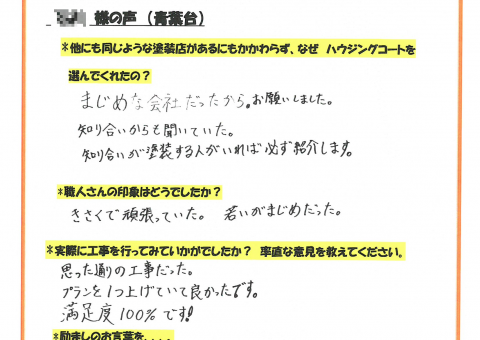 様の声（青葉台）
*他にも同じような塗装店があるにもかかわらず、なぜ ハウジングコートを
選んでくれたの？
まじめな会社だったから。お願いしました。
知り合いからも聞いていた。
知り合いが塗装する人がいれば必ず紹介します。
*職人さんの印象はどうでしたか？
きさくで頑張っていた。 若いがまじめだった。
*実際に工事を行ってみていかがでしたか？ 率直な意見を教えてください。
思った通りの工事だった。
プランを1つ上げていて良かったです。
満足度100%です!
*励ましのお言葉を．．．．